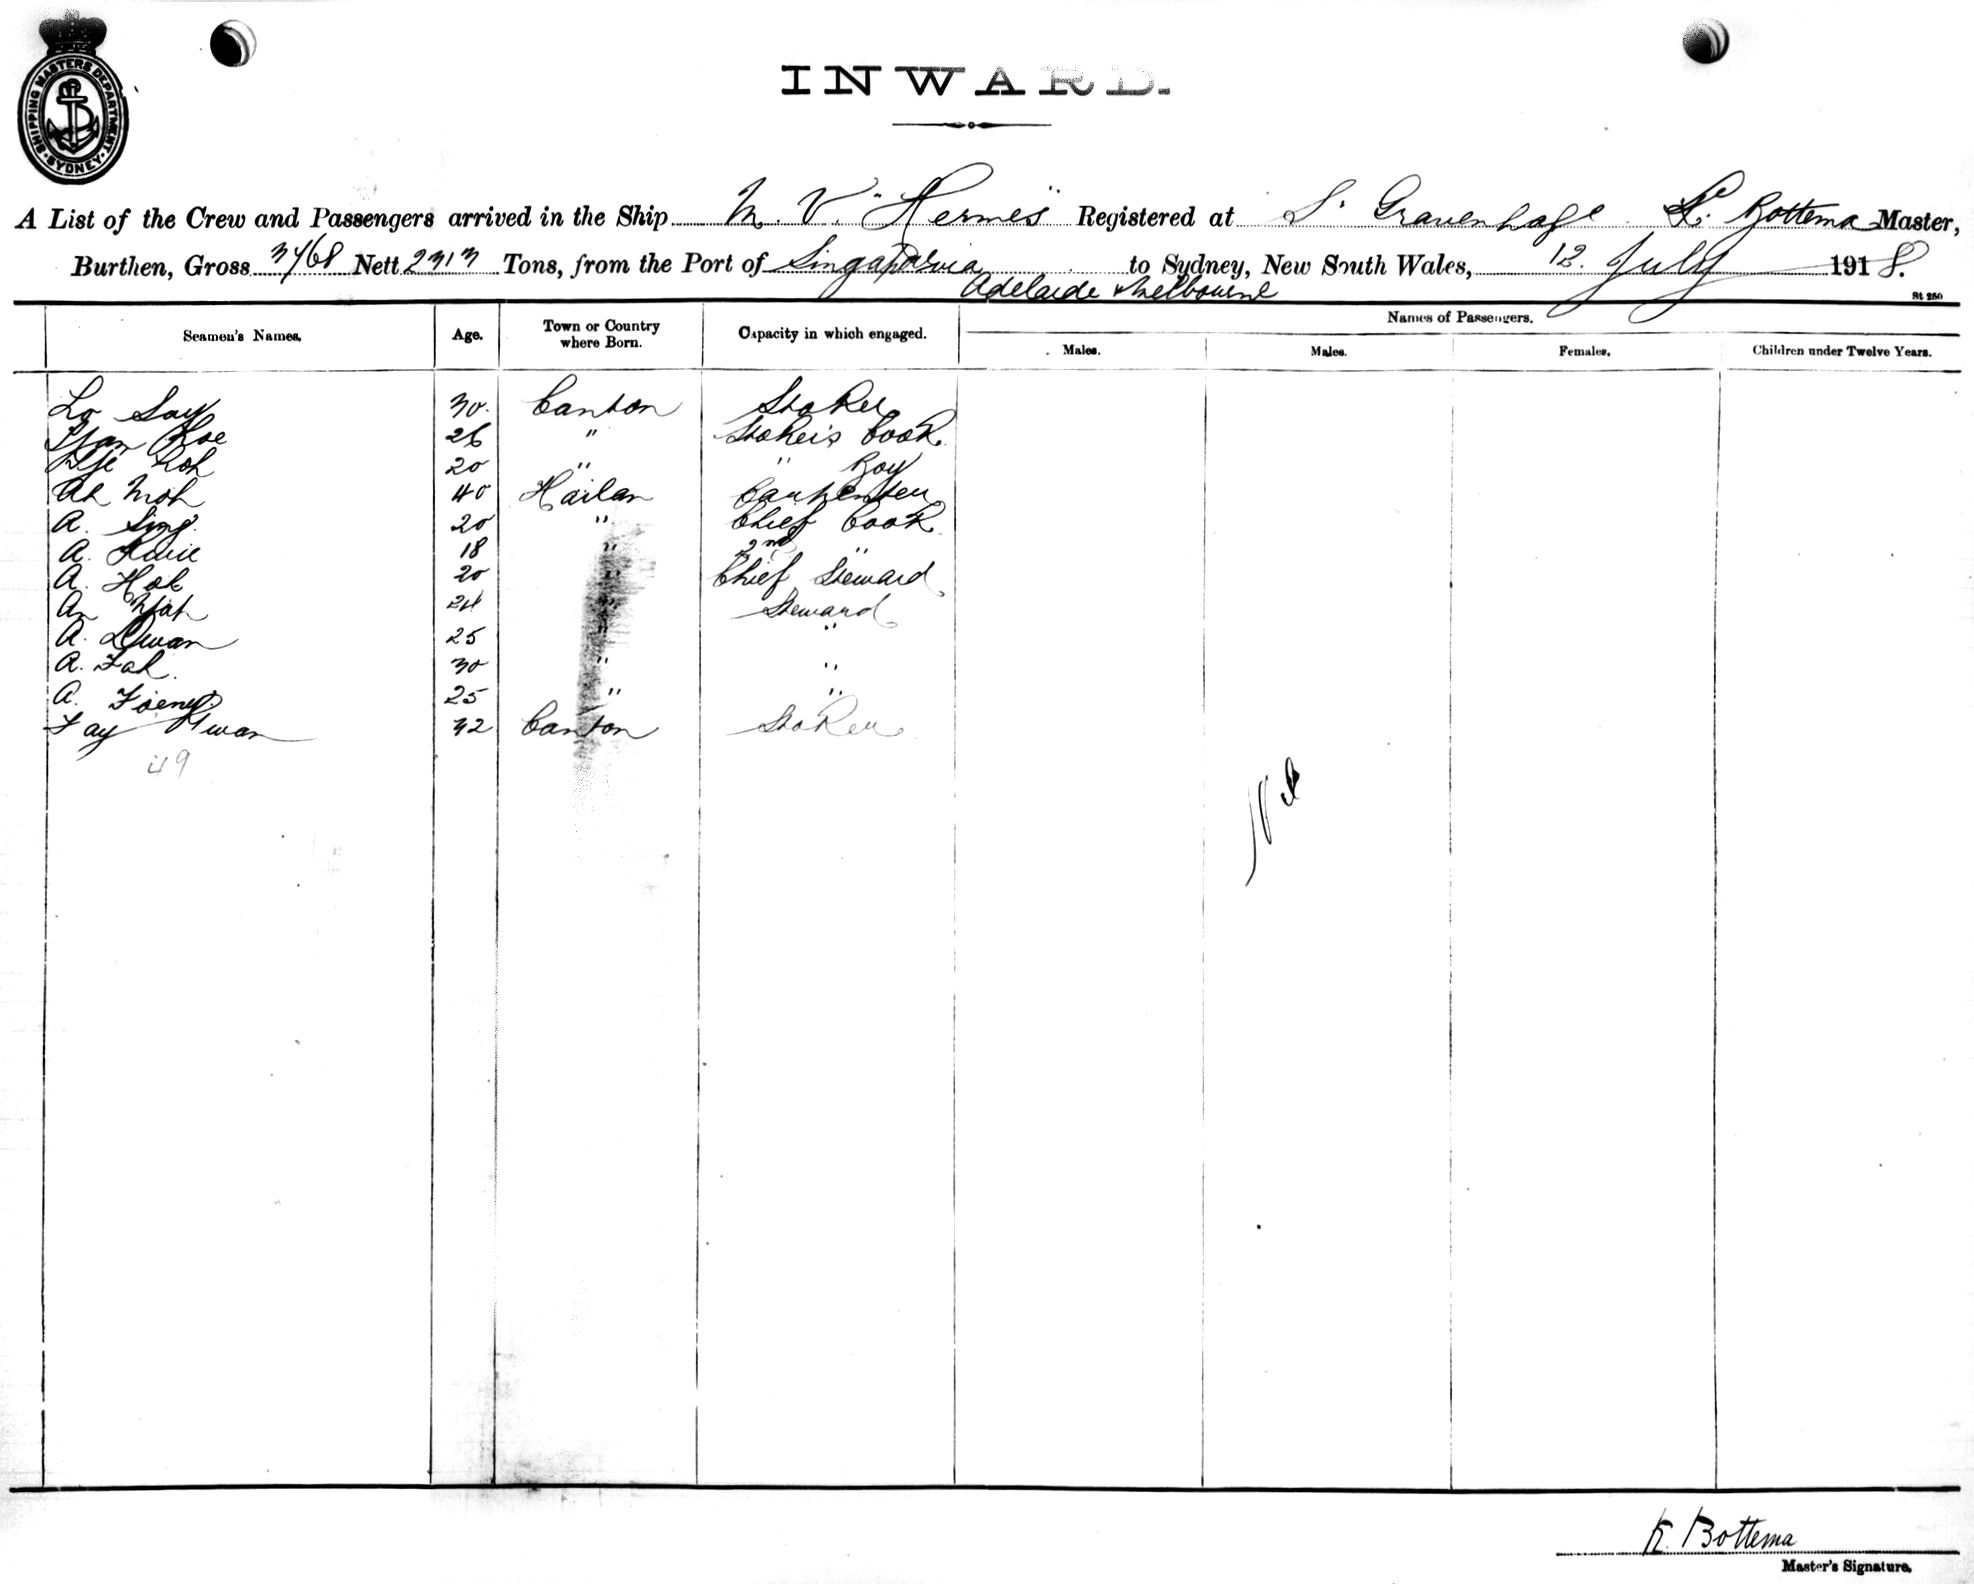 SHIPPING MASTERS DEPARTMENT. SYDNEY.
INWARD.
A List of the Crew and Passengers arrived in the Ship M. V. "Hermes" Registered at S' Gravenhage K. Bottema Master,
Burthen, Gross 3768 Nett 2313 Tons, from the Port of Singapore via to Sydney, New South Wales, 12. July 1918.
Adelaide & Melbourne
St 250
Seamen's Names. Age. Town or Country where Born. Capacity in which engaged. Names of Passengers.
Males. Males. Females. Children under Twelve Years.
Lo Say 30. Canton Stoker
Koe 26 " Stoker's Cook
Koh 20 " " Boy
Ah Moh 40 Hailan Carpenter
A. Sing. 20 " Chief Cook
A. 18 " 2nd "
A. Hok 20 " Chief Steward
24 " Steward
A. 25 " "
A. Fah. 30 " "
A. Foeng. 25 " "
Fay Kwan 32 Canton Stoker
49
Nil
K. Bottema
Master's Signature.